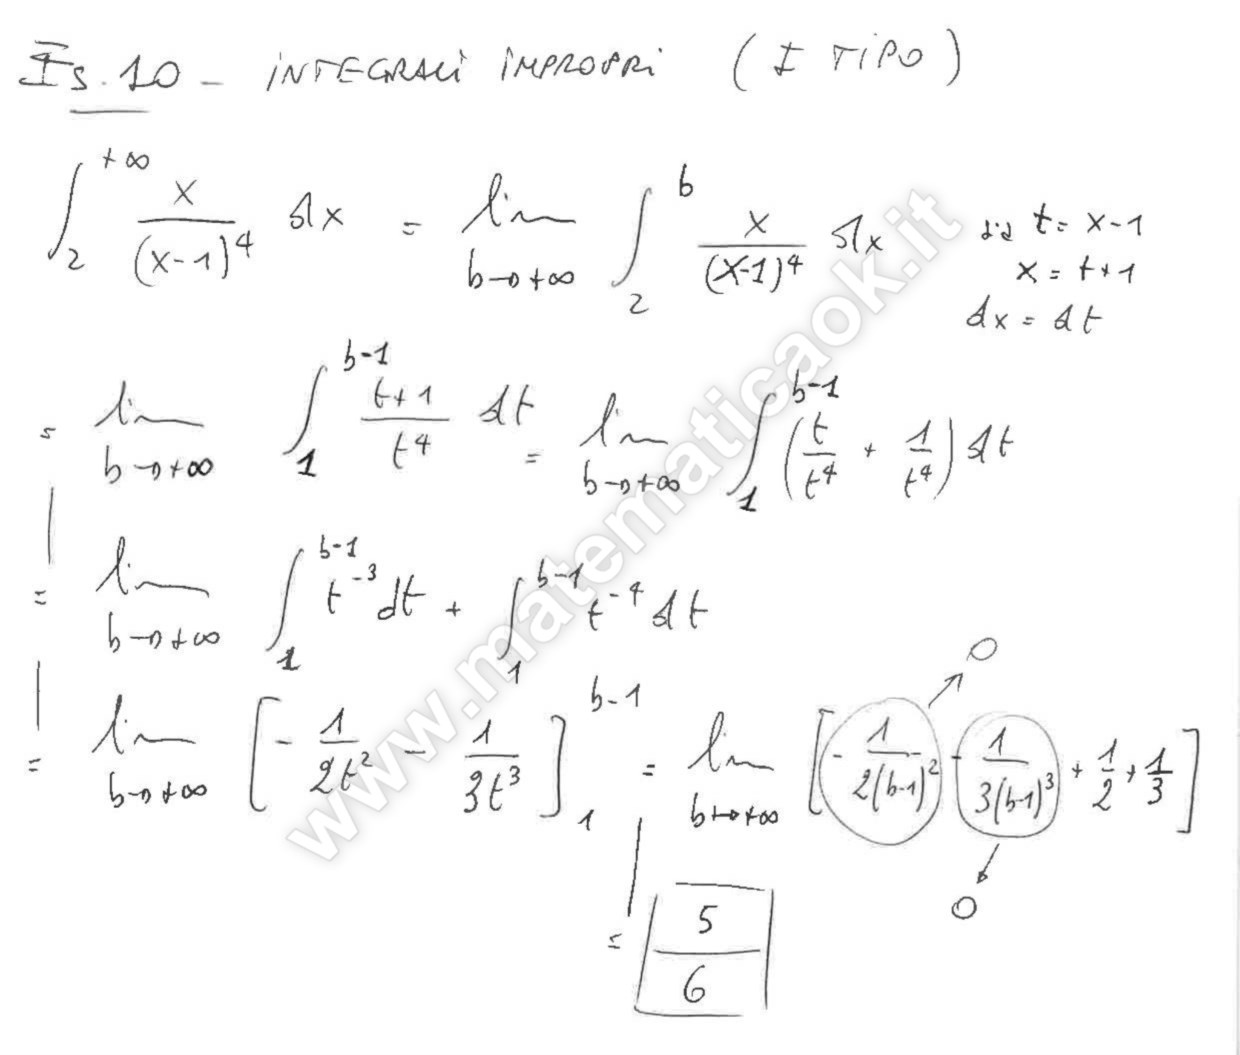 Es. 10 - INTEGRALI IMPROPRI (I TIPO)
∫_2^{+∞} x/(x-1)^4 dx = lim_{b→+∞} ∫_2^b x/(x-1)^4 dx
t = x-1
x = t+1
dx = dt
= lim_{b→+∞} ∫_1^{b-1} (t+1)/t^4 dt = lim_{b→+∞} ∫_1^{b-1} (t/t^4 + 1/t^4) dt
= lim_{b→+∞} ∫_1^{b-1} t^{-3} dt + ∫_1^{b-1} t^{-4} dt
= lim_{b→+∞} [-1/(2t^2) - 1/(3t^3)]_1^{b-1} = lim_{b→+∞} [-1/(2(b-1)^2) - 1/(3(b-1)^3) + 1/2 + 1/3]
0
0
= 5/6
www.matematicaok.it